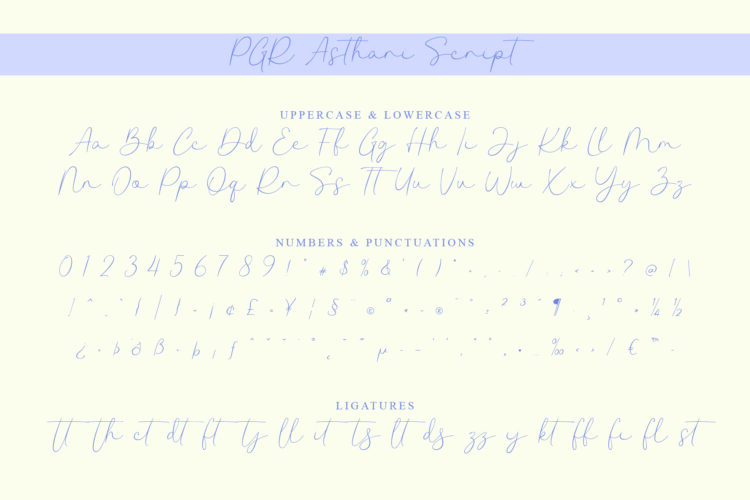 PGR Asthani Script
UPPERCASE & LOWERCASE
Aa Bb Cc Dd Ee Ff Gg Hh Ii Jj Kk Ll Mm
Nn Oo Pp Qq Rr Ss Tt Uu Vv Ww Xx Yy Zz
NUMBERS & PUNCTUATIONS
0 1 2 3 4 5 6 7 8 9 ! " # $ % & ' ( ) * + , - . / : ; < = > ? @ [ \
] ^ _ ` { | } ~ ¡ ¢ £ ¤ ¥ ¦ § ¨ © ª « ¬ ® ¯ ° ± ² ³ ´ ¶ · ¸ ¹ º » ¼ ½
¿ × Þ ð ß ÷ þ ı ƒ µ – — ‰ ‹ › ⁄ € ™ −
LIGATURES
tt th ct dt ft tj ll it ts lt ds zz y kt ff fi fl st